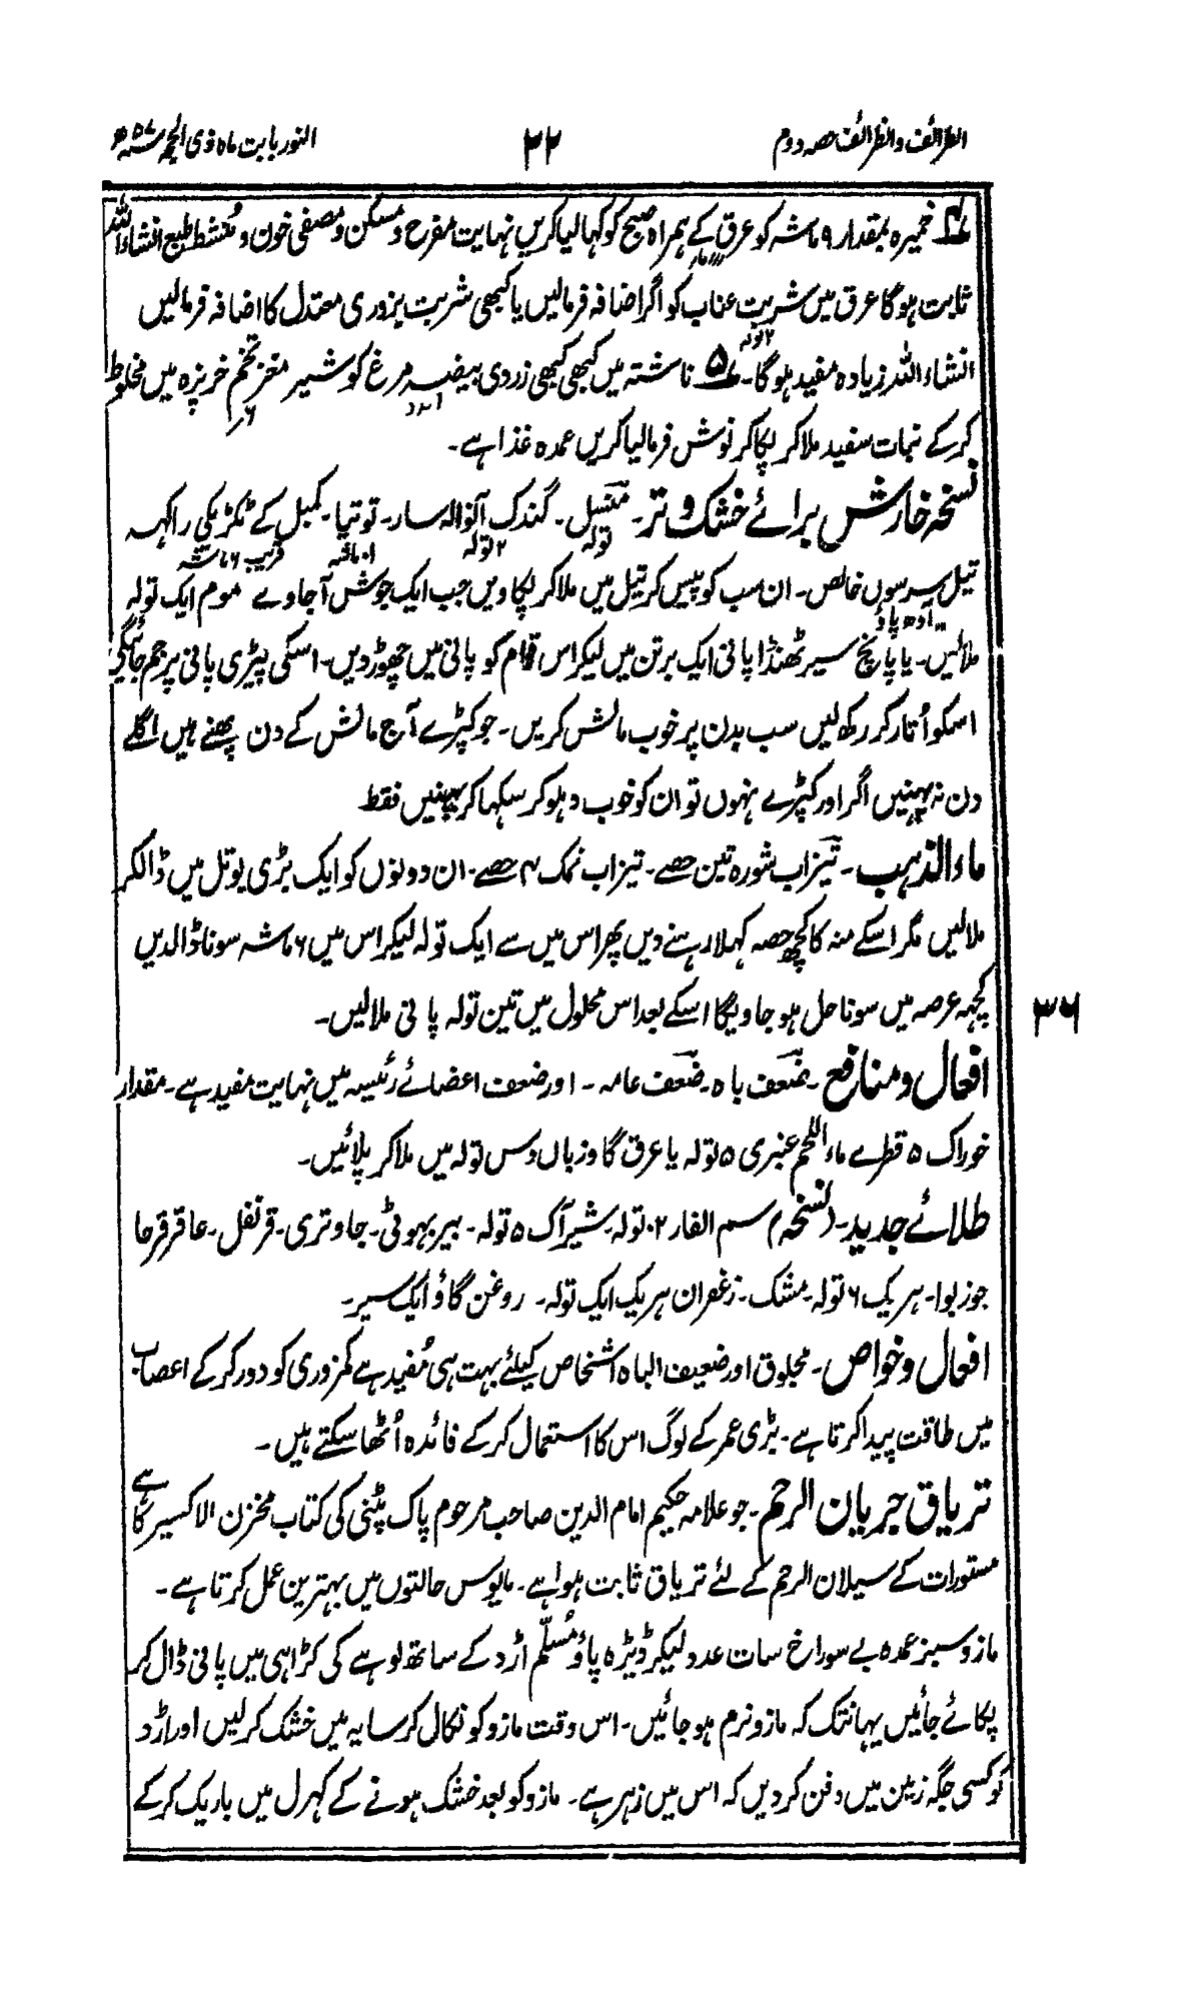 الطرائف والظرائف حصہ دوم
۲۲
النور بابت ماہ ذی الحجہ ۵۷ھ
۴ خمیرہ بمقدار ۹ ماشہ کو عرق کے ہمراہ صبح کو کہا لیا کریں نہایت مفرح و مسکن و مصفی خون و منشط طبع انشاءاللہ
ثابت ہوگا عرق میں شربت عناب کو اگر اضافہ فرمالیں یا کبھی شربت بزوری معتدل کا اضافہ فرمالیں
۲ تولہ
انشاء اللہ زیادہ مفید ہوگا۔ ۵ ناشتہ میں کبھی کبھی زردی بیضہ مرغ کو شیر مغز تخم خرپزہ میں مخلوط
کرکے نبات سفید ملاکر پکاکر نوش فرمالیا کریں عمدہ غذا ہے۔
نسخہ خارش برائے خشک و تر۔ منسیل۔ گندک آنولہ سار۔ توتیا۔ کمبل کے ٹکڑیکی راکہہ
تولہ ۲ تولہ ۱۰ ماشہ قریب ۶ ماشہ
تیل سرسوں خالص۔ ان سب کو پیس کر تیل میں ملاکر پکاویں جب ایک جوش آجاوے موم ایک تولہ
آدھ پاؤ
ملائیں۔ یا پانچ سیر ٹھنڈا پانی ایک برتن میں لیکر اس قوام کو پانی میں چھوڑدیں۔ اسکی پپڑی پانی پر جم جائیگی
اسکو اُتار کر رکھ لیں سب بدن پر خوب مالش کریں۔ جو کپڑے آج مالش کے دن پہنے ہیں اگلے
دن نہ پہنیں اگر اور کپڑے نہوں تو ان کو خوب دہلوکر سکہا کر پہنیں فقط
ماء الذہب۔ تیزاب شورہ تین حصے۔ تیزاب نمک ۴ حصے۔ ان دونوں کو ایک بڑی بوتل میں ڈالکر
ملالیں مگر اسکے منہ کا کچھ حصہ کہلا رہنے دیں پھر اس میں سے ایک تولہ لیکر اس میں ۶ ماشہ سونا ڈالدیں
کچہہ عرصہ میں سونا حل ہو جاویگا اسکے بعد اس محلول میں تین تولہ پانی ملالیں۔
۳۶
افعال و منافع۔ ضعف باہ۔ ضعف عامہ۔ اور ضعف اعضائے رئیسہ میں نہایت مفید ہے۔ مقدار
خوراک ۵ قطرے ماء اللحم عنبری ۵ تولہ یا عرق گاؤزباں دس تولہ میں ملاکر پلائیں۔
طلائے جدید۔ (نسخہ) سم الفار ۲۔ تولہ۔ شیر آک ۵ تولہ۔ بیر بہوٹی۔ جاوتری۔ قرنفل۔ عاقرقرحا
جوزبوا۔ ہریک ۶ تولہ۔ مشک۔ زعفران ہریک ایک تولہ۔ روغن گاؤ ایک سیر۔
افعال و خواص۔ مجلوق اور ضعیف الباہ اشخاص کیلئے بہت ہی مُفید ہے کمزوری کو دور کرکے اعصاب
میں طاقت پیدا کرتا ہے۔ بڑی عمر کے لوگ اس کا استعمال کرکے فائدہ اُٹھا سکتے ہیں۔
تریاق جریان الرحم۔ جو علامہ حکیم امام الدین صاحب مرحوم پاک پٹنی کی کتاب مخزن الاکسیر کا ہے
مستورات کے سیلان الرحم کے لئے تریاق ثابت ہوا ہے۔ مایوس حالتوں میں بہترین عمل کرتا ہے۔
مازو سبز عمدہ بے سوراخ سات عدد لیکر ڈیڑہ پاؤ مُسلّم اڑد کے ساتھ لوہے کی کڑاہی میں پانی ڈال کر
پکائے جائیں یہانتک کہ مازو نرم ہوجائیں۔ اس وقت مازو کو نکال کر سایہ میں خشک کرلیں اور اڑد
کو کسی جگہ زمین میں دفن کردیں کہ اس میں زہر ہے۔ مازو کو بعد خشک ہونے کے کہرل میں باریک کرکے